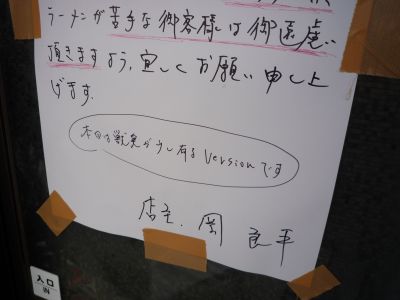 ラーメンが苦手な御客様は御遠慮
頂きますよう、宜しくお願い申し上
げます。
本日は獣臭が少し有るversionです
店主. 岡 良平
入口
IN